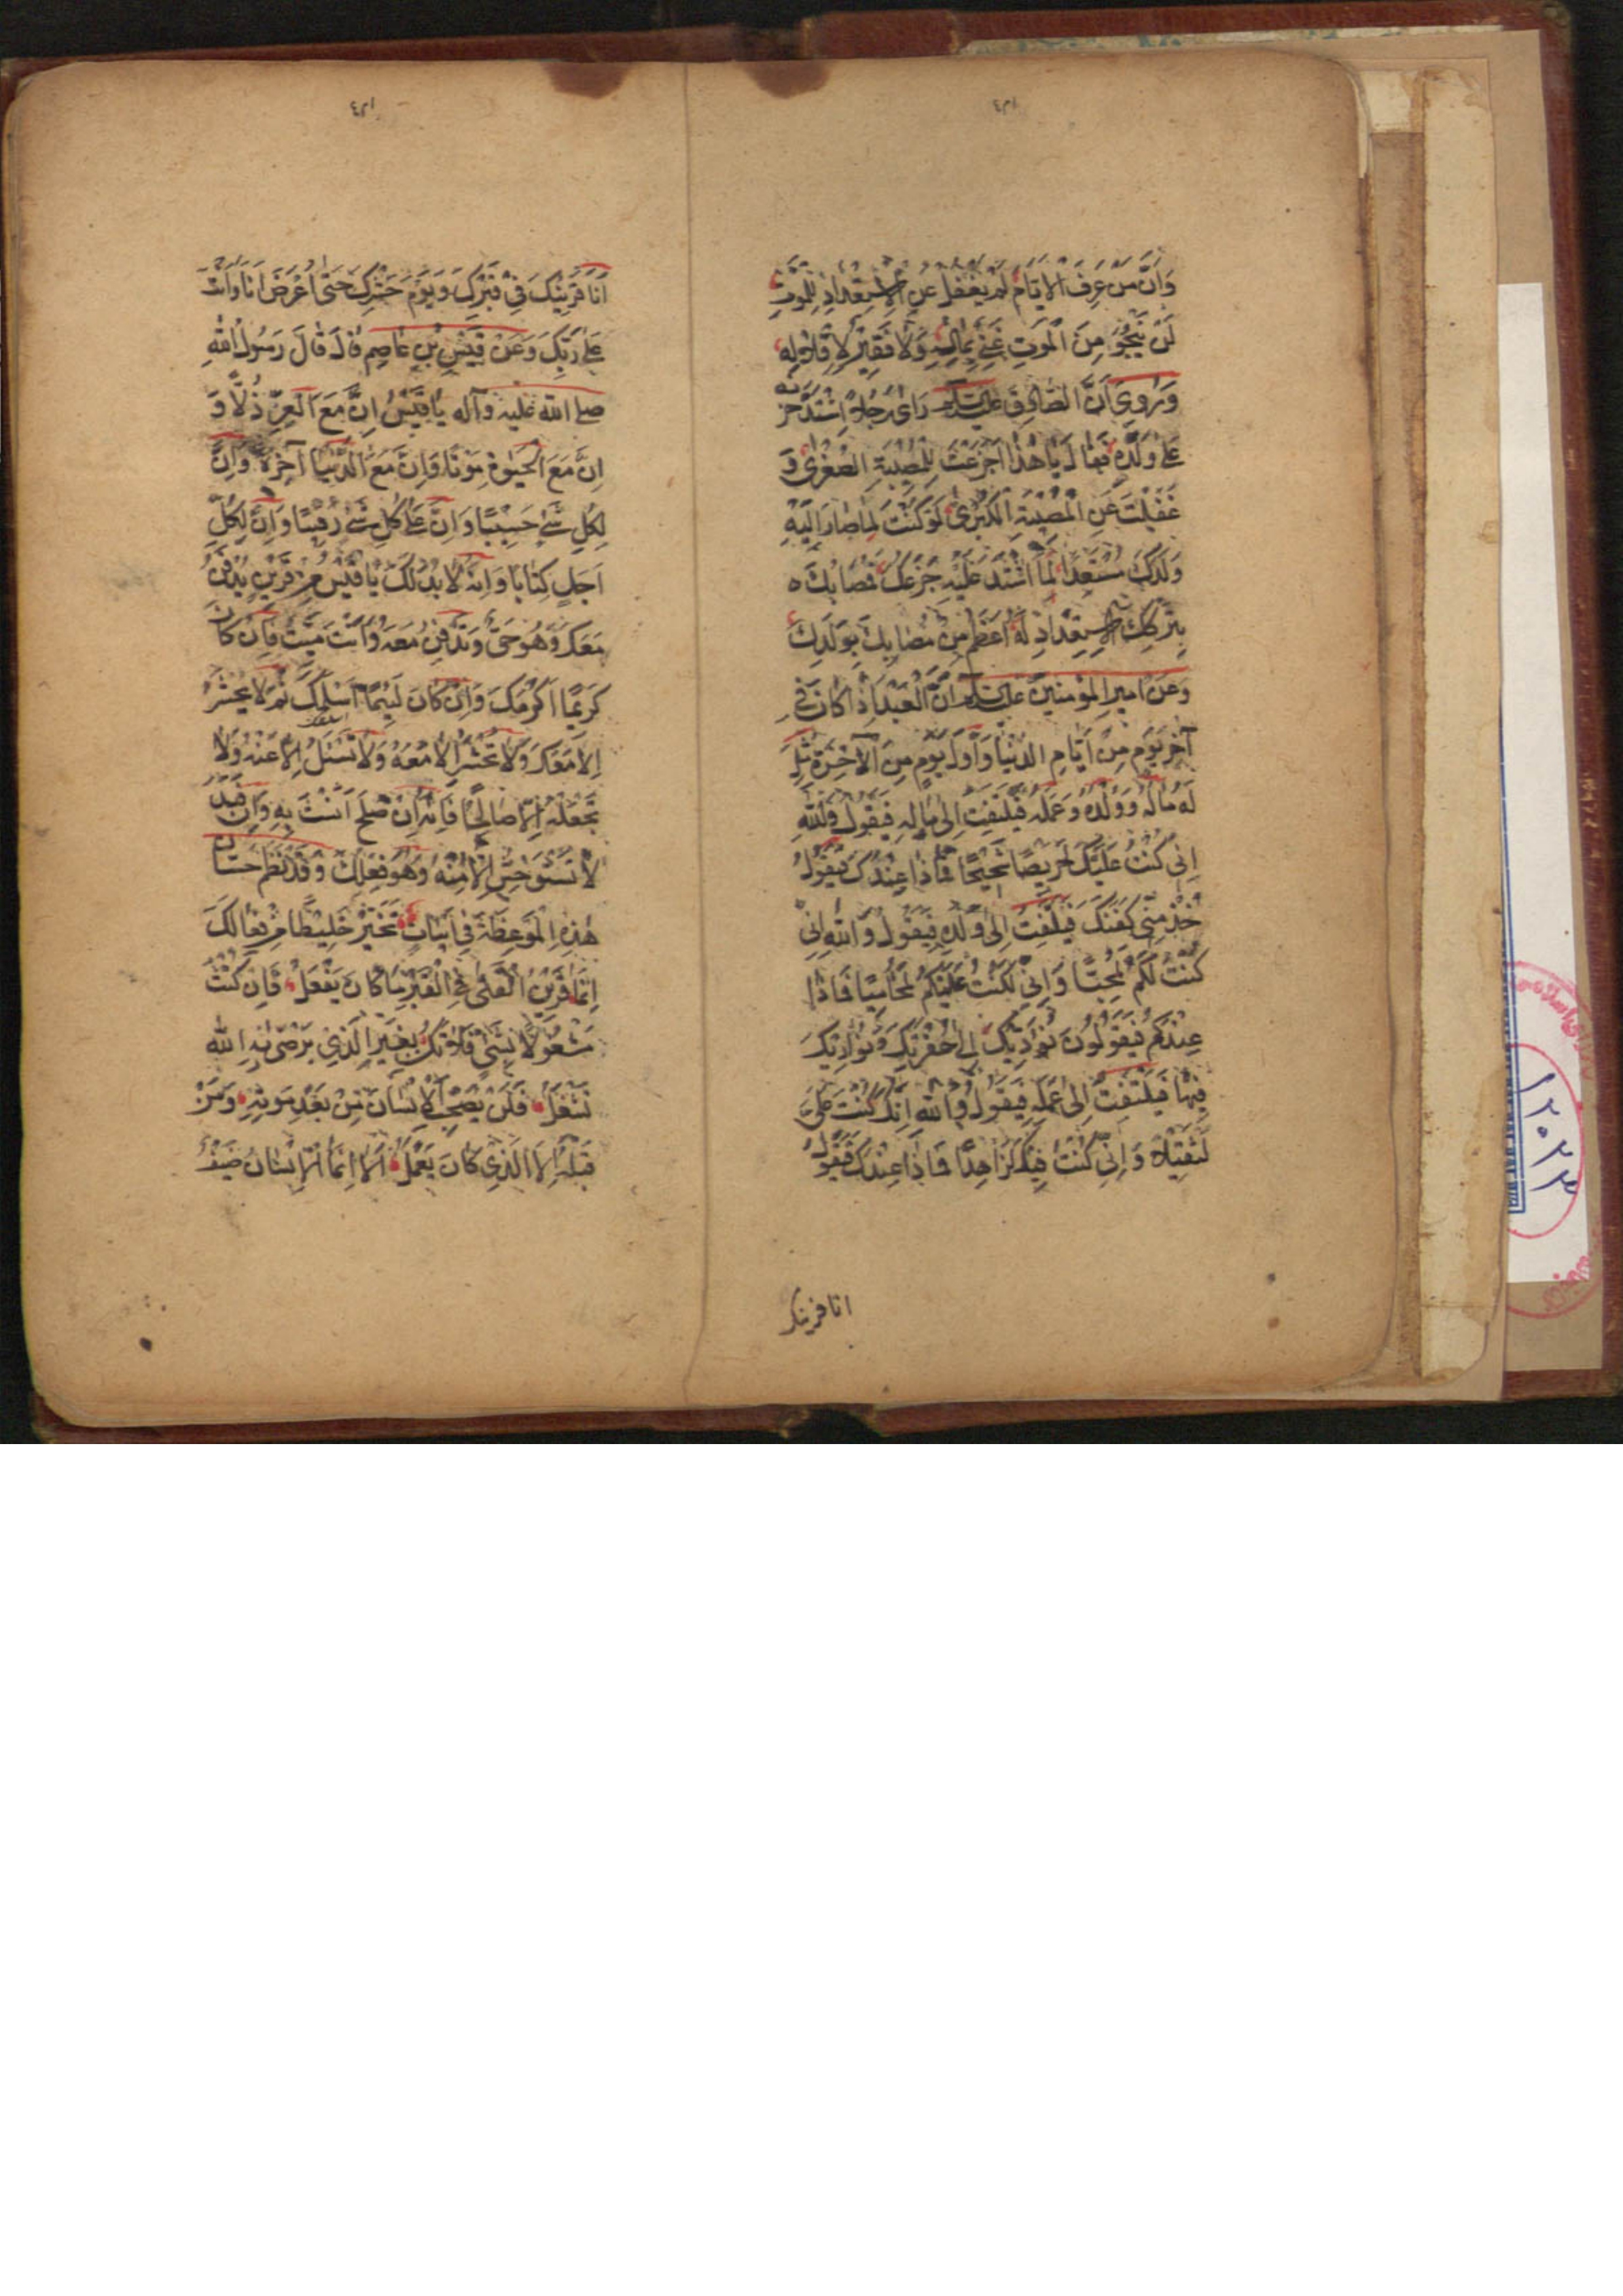 وَاَنَّ مَنْ عَرَفَ الْاَيّٰامَ لَمْ يَغْفُلْ عَنِ الْاِسْتِعْدٰادِ لِلْمَوْتِ
لَنْ يَنْجُوَ مِنَ الْمَوْتِ غَنِيٌّ بِمٰالِهِ وَلٰا فَقِيرٌ لِاِقْلٰالِهِ
وَرُوِيَ اَنَّ الصّٰادِقَ عليه السلام رَاىٰ رَجُلاً اِشْتَدَّ جَزَعُهُ
عَلىٰ وَلَدِهِ فَقٰالَ يٰا هٰذٰا جَزِعْتَ لِلْمُصِيبَةِ الصُّغْرىٰ وَ
غَفَلْتَ عَنِ الْمُصِيبَةِ الْكُبْرىٰ لَوْ كُنْتَ لِمٰا صٰارَ اِلَيْهِ
وَلَدُكَ مُسْتَعِدّاً لَمٰا اشْتَدَّ عَلَيْهِ جَزَعُكَ فَمُصٰابُكَ ه
بِتَرْكِكَ الْاِسْتِعْدٰادَ لَهُ اَعْظَمُ مِنْ مُصٰابِكَ بِوَلَدِكَ
وَعَنْ اَمِيرِ الْمُؤْمِنِينَ عليه السلام اَنَّ الْعَبْدَ اِذٰا كٰانَ فِي
آخِرِ يَوْمٍ مِنْ اَيّٰامِ الدُّنْيٰا وَاَوَّلِ يَوْمٍ مِنَ الْآخِرَةِ مُثِّلَ
لَهُ مٰالُهُ وَوَلَدُهُ وَعَمَلُهُ فَيَلْتَفِتُ اِلىٰ مٰالِهِ فَيَقُولُ وَاللّٰهِ
اِنِّي كُنْتُ عَلَيْكَ لَحَرِيصًا شَحِيحًا فَمٰاذٰا عِنْدَكَ فَيَقُولُ
خُذْ مِنِّي كَفَنَكَ فَيَلْتَفِتُ اِلىٰ وَلَدِهِ فَيَقُولُ وَاللّٰهِ اِنِّي
كُنْتُ لَكُمْ لَمُحِبًّا وَاِنِّي لَكُنْتُ عَلَيْكُمْ لَمُحٰامِيًا فَمٰاذٰا
عِنْدَكُمْ فَيَقُولُونَ نُؤَدِّيكَ اِلىٰ حُفْرَتِكَ وَنُوٰارِيكَ
فِيهٰا فَيَلْتَفِتُ اِلىٰ عَمَلِهِ فَيَقُولُ وَاللّٰهِ اِنَّكَ كُنْتَ عَلَيَّ
لَثَقِيلاً وَاِنِّي كُنْتُ فِيكَ لَزٰاهِدًا فَمٰاذٰا عِنْدَكَ فَيَقُولُ
انا قرينك
اَنَا قَرِينُكَ فِي قَبْرِكَ وَيَوْمِ حَشْرِكَ حَتّىٰ اُعْرَضَ اَنَا وَاَنْتَ
عَلىٰ رَبِّكَ وَعَنْ قَيْسِ بْنِ عٰاصِمٍ قٰالَ قٰالَ رَسُولُ اللّٰهِ
صلى الله عليه وآله يٰا قَيْسُ اِنَّ مَعَ الْعِزِّ ذُلّاً وَ
اِنَّ مَعَ الْحَيٰوةِ مَوْتًا وَاِنَّ مَعَ الدُّنْيٰا آخِرَةً وَاِنَّ
لِكُلِّ شَيْءٍ حَسِيبًا وَاِنَّ عَلىٰ كُلِّ شَيْءٍ رَقِيبًا وَاِنَّ لِكُلِّ
اَجَلٍ كِتٰابًا وَاِنَّهُ لٰا بُدَّ لَكَ يٰا قَيْسُ مِنْ قَرِينٍ يُدْفَنُ
مَعَكَ وَهُوَ حَيٌّ وَتُدْفَنُ مَعَهُ وَاَنْتَ مَيِّتٌ فَاِنْ كٰانَ
كَرِيمًا اَكْرَمَكَ وَاِنْ كٰانَ لَئِيمًا اَسْلَمَكَ ثُمَّ لٰا يُحْشَرُ
اِلّٰا مَعَكَ وَلٰا تُحْشَرُ اِلّٰا مَعَهُ وَلٰا تُسْئَلُ اِلّٰا عَنْهُ وَلٰا
تَجْعَلْهُ اِلّٰا صٰالِحًا فَاِنَّهُ اِنْ صَلَحَ اَنَسْتَ بِهِ وَاِنْ فَسَدَ
لٰا تَسْتَوْحِشُ اِلّٰا مِنْهُ وَهُوَ فِعْلُكَ وَقَدْ نَظَمَ حَسّٰانُ
هٰذِهِ الْمَوْعِظَةَ فِي اَبْيٰاتٍ تَخَيَّرْ خَلِيطًا مِنْ فِعٰالِكَ
اِنَّمٰا قَرِينُ الْفَتىٰ فِي الْقَبْرِ مٰا كٰانَ يَفْعَلُ فَاِنْ كُنْتَ
مَشْغُولاً بِشَيْءٍ فَلٰا تَكُنْ بِغَيْرِ الَّذِي يَرْضىٰ بِهِ اللّٰهُ
تُشْغَلُ فَلَنْ يَصْحَبَ الْاِنْسٰانَ مِنْ بَعْدِ مَوْتِهِ وَمِنْ
قَبْلِهِ اِلَّا الَّذِي كٰانَ يَعْمَلُ اَلٰا اِنَّمَا الْاِنْسٰانُ ضَيْفٌ